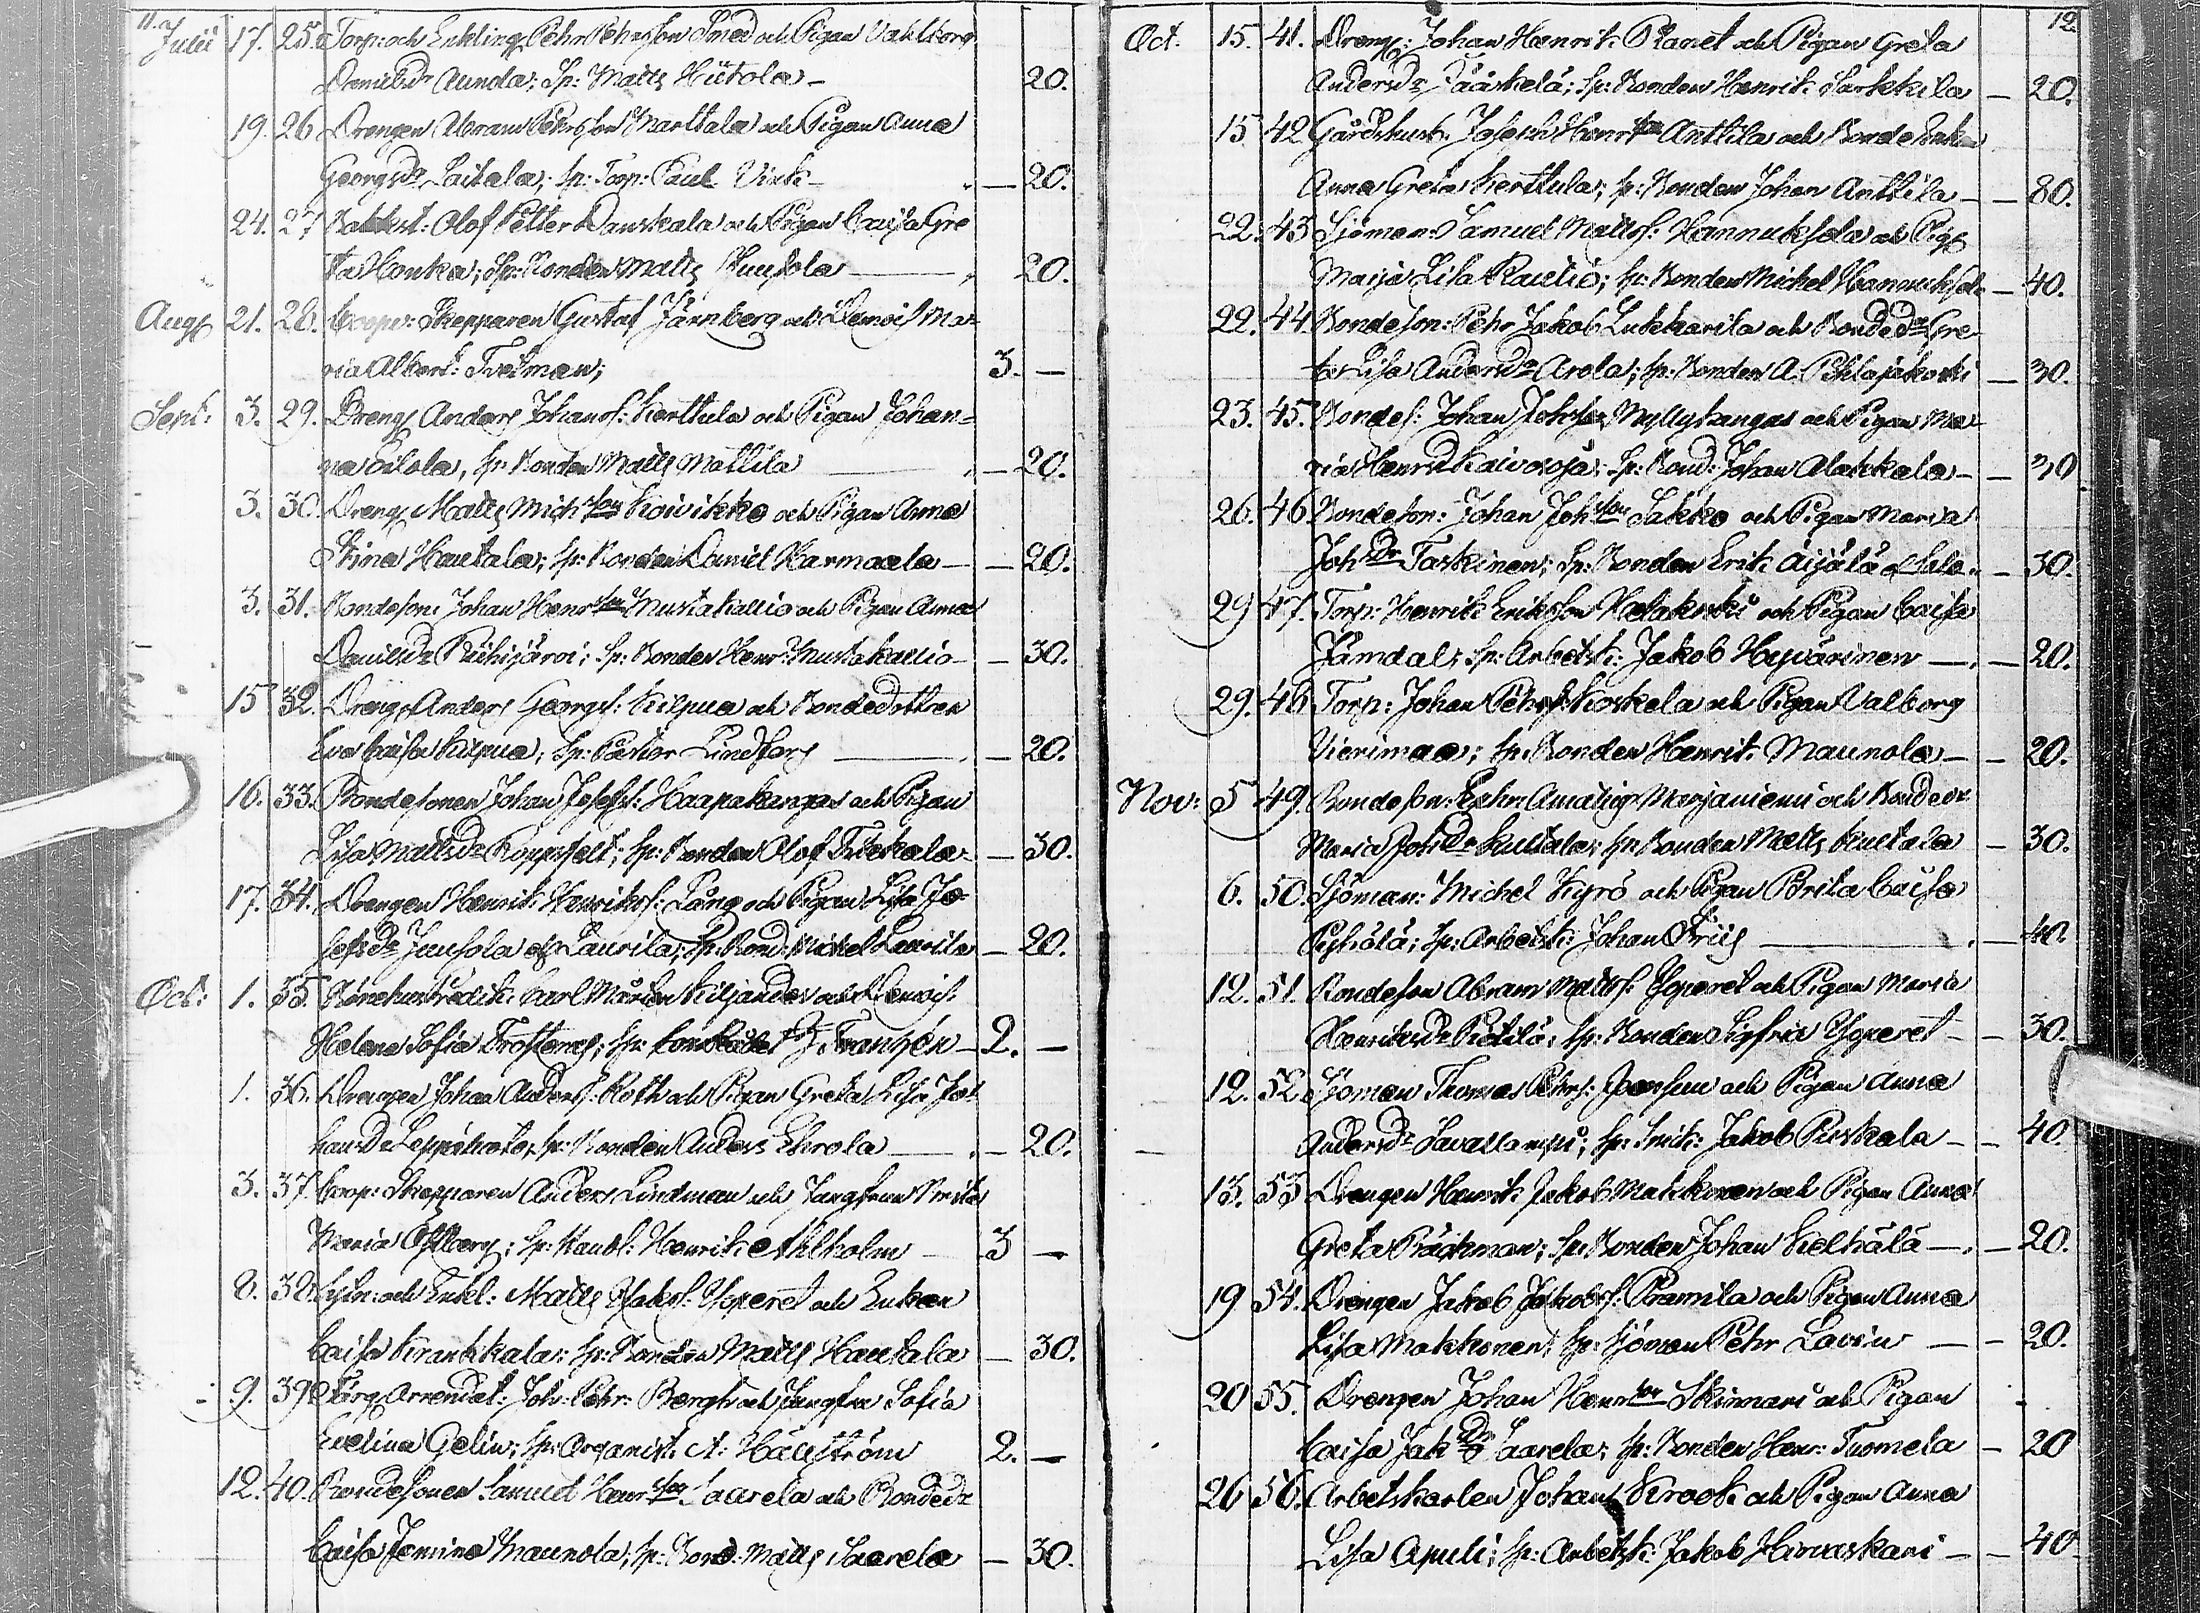 11.
Julii 17. 25. Torp: och Enkling Pehr Pehrsson Smed och Pigan Vahlborg
Danielsdr Aunola; Sp: Matts Hütola - 20.
19. 26 Drengen Abram Pehrsson Marttala och Pigan Anna
Georgsdr Laitala; Sp: Torp: Paul Vink - - 20.
24. 27 Olof Petter Danskala och Pigan Caisa Gre
ta Honka; Sp: Bonden Matts Juusola - 20.
Aug 21. 28. Coop: Skepparen Gustaf Järnberg och Demois Ma=
ria Albert: Tretman; 3. -
Sept: 3. 29. Dreng Anders Johansf: Kerttula och Pigan Johan=
na Eilola, Sp: Bonden Matts Mattila - 20.
3. 30. Dreng Matts Michsson Koivikko och Pigan Anna
Stina Hautala; Sp: Bonden Daniel Harmaala - - 20.
3. 31. Bondeson: Johan Henrsson Mustakallio och Pigan Anna
Danielsdr Pühijärvi; Sp: Bonden Henr: Mustakallio - - 30.
15 32. Dreng Anders Georgsf: Kilpua och Bondedottren
Eva Caisa Kilpua; Sp: Pastor Lindfors - 20.
16. 33. Bondesonen Johan Josefsf: Haapakangas och Pigan
Lisa Mattsdr Koppsfelt; Sp: Bonden Olof Friskala - 30.
17. 34. Drengen Henrik Henriksf: Lång och Pigan Lisa Jo=
sefsdr Juusola af Laurila; Sp: Bond: Michel Laurila - 20.
Oct: 1. 35. Carl Mårten Kiljander och Demois:
Helena Sofia Frosterus; Sp: Franzén - 2. -
1. 36. Drengen Johan Andersf: Roth och Pigan Greta Lisa Jo=
hansdr Leppihete, Sp: Bonden Anders Eskola - 20.
3. 37. Coop: Skepparen Anders Lindman och Jungfrun Brita
Maria Ostberg; Sp: Handl: Henrik Ahlholm - 3 -
8. 38. och Enkl: Matts Jakosf: Ysperet och Enkan
Caisa Krankkala; Sp: Bonden Matts Hautala - 30.
9. 39. Färg Arrendat: Joh: Pehr: Bergh och Jungfru Sofia
Evelina Gelin; Sp: Organist: A: Hällström 2. -
12. 40. Bondesonen Samuel Henrsson Saarela och Bondedr
Caisa Jemina Maunola; Sp: Bond: Matts Saarela - 30.
12.
Oct. 15. 41. Dreng: Johan Henrik Planet och Pigan Greta
Andersdr Jääskelä; Sp: Bonden Henrik Sarkkila - 20.
15 42. Gårdshusb: Joseph Henrsson Anttila och Bonde Enkan
Anna Greta Kerttula; Sp: Bonden Johan Anttila - - 80.
22. 43 Sjöman: Samuel Mattsf: Hannuksela och Pig
Maija Lisa Rautio; Sp: Bonden Michel Hannuksel - 40.
22. 44 Bondeson: Pehr Jakob Lukkarila och Bondedr Gre
ta Lisa Andersdr Arola; Sp: Bonden A. Pihlajakoski - 30.
23. 45. Bondes: Johan Johsson Myllykangas och Pigan Ma
ria Henrdr Kaivosoja; Sp: Bond: Johan Alakkala - - 30
26. 46 Bondeson: Johan Johsson Sakko och Pigan Maria
Johdr Taskinen; Sp: Bonden Erik Äijälä - 30.
29 47. Torp: Henrik Eriksson Halakoski och Pigan Caisa
Järndal; Sp: Arbetsk: Jakob Hyvärinen - - 20.
29. 48 Torp: Johan Pehrsf: Koskela och Pigan Valborg
Vierimaa; Sp: Bonden Henrik Maunola - - 20.
Nov: 5 49. Bondeson: Zachr: Marjaniemi och Bondedr
Maria Johsdr Kultala; Sp: Bonden Matts Kultala - 30.
6. 50. Sjöman: Michel Kyrö och Pigan Brita Caisa
Pyhälä; Sp: Arbetsk: Johan Friis - - 40.
12. 51. Bondeson Abram Mattsf: Ysperet och Pigan Maria
Henriksdr Pietilä; Sp: Bonden Sigfrid Ysperet - - 30.
12. 52. Sjöman Thomas Pehrsf: Joensuu och Pigan Anna
Andersdr Savallampi; Sp: Smik: Jakob Pieskala - - 40.
13. 53 Drengen Henrik Jakob Makkonen och Pigan Anna
Greta Bäckman; Sp: Bonden Johan Kielhälä - - 20.
19 54. Drengen Jakob Jakobsf: Pramila och Pigan Anna
Lisa Makkonen; Sp: Sjöman Pehr Lavin - - 20.
20 55. Drengen Johan Henrsson Skinnari och Pigan
Caisa Jakdr Saarela; Sp: Bonden Henr: Tuomela - 20
26 56. Arbetskarlen Johan Krook och Pigan Anna
Lisa Apuli; Sp: Arbetsk: Jakob Hirvaskari - - 40